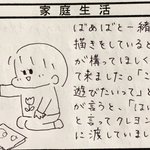 家庭生活
ばあばと一緒
描きをしていると
が構ってほしく
て来ました。「こ
遊びたいって」と
が言うと、「は
と言ってクレヨン
に渡していまし